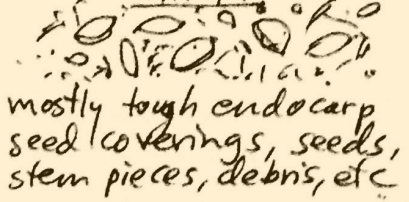 mostly tough endocarp
seed coverings, seeds,
stem pieces, debris, etc